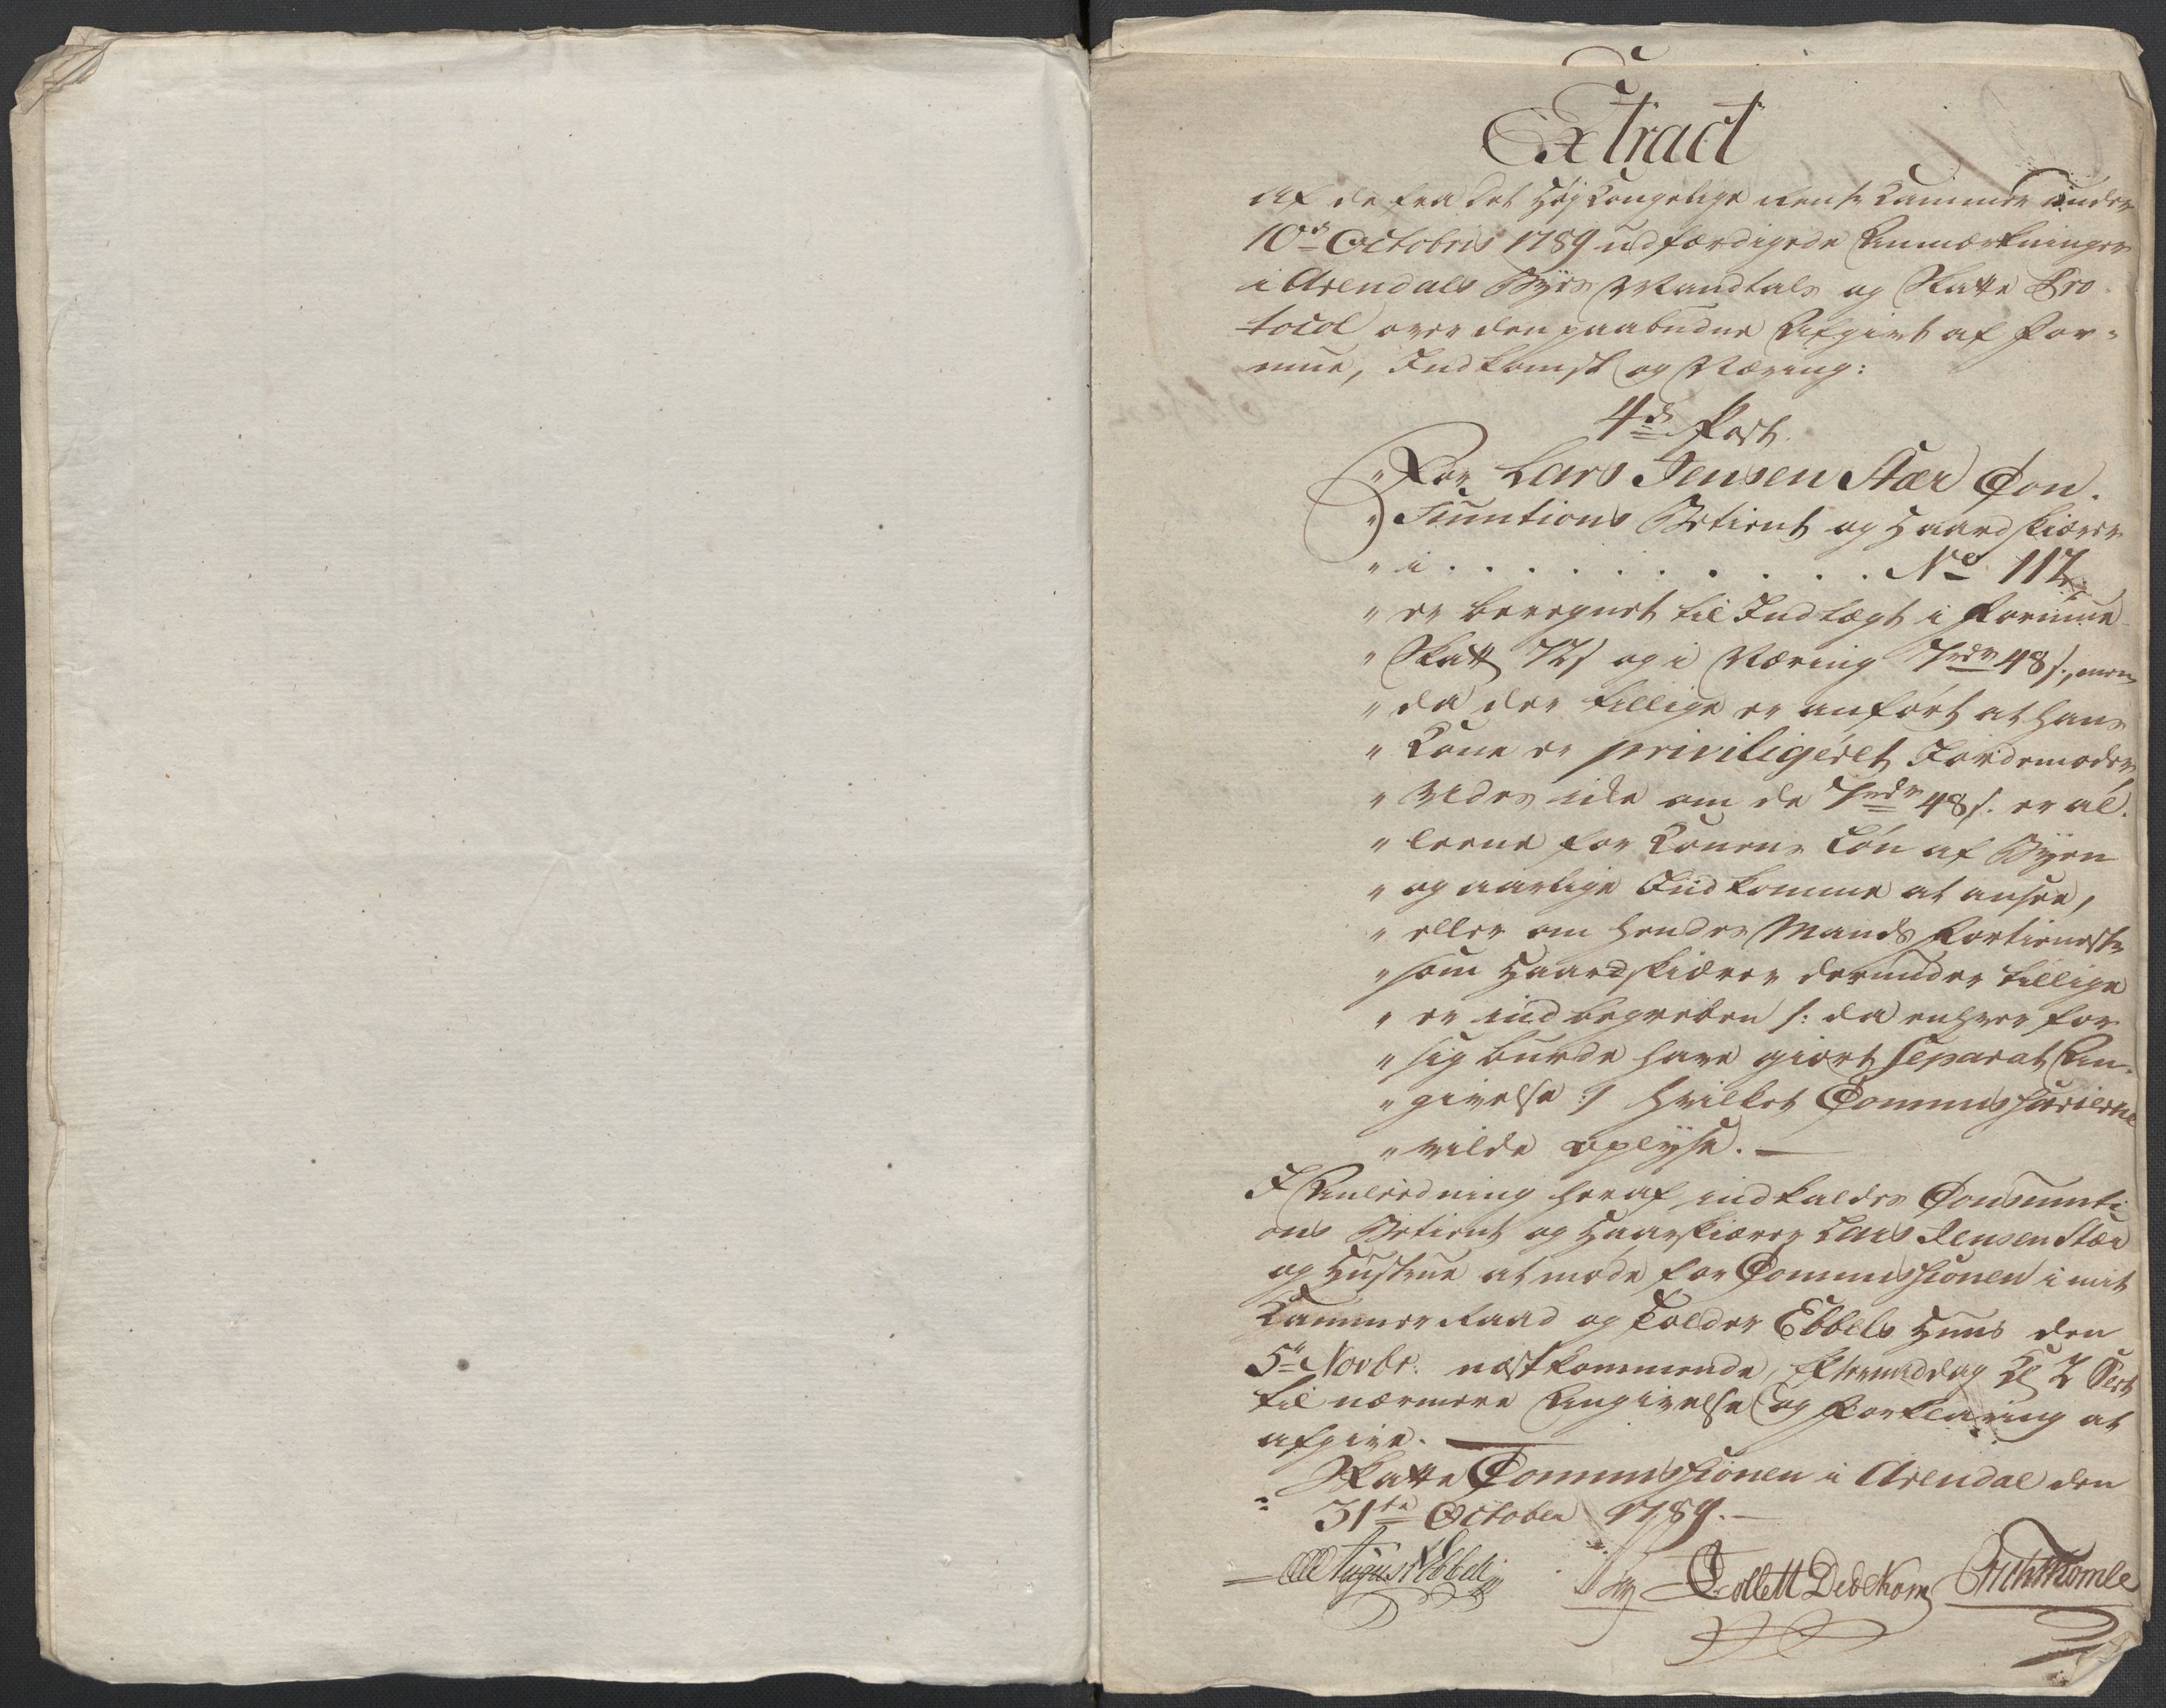 Extract
af de fra det Høj Kongelige Rente Cammer under
10de Octobris 1789 udfærdigede Anmærkninger
i Arendals Byes Mandtals og Skatte Pro-
tocol over den paabudne Afgivt af For-
mue, Indkomst og Næring:
4de Post.
" For Lars Jensen Stær Con-
" sumtions Betient og Haandskiærer
" i . . . . . . . . . . . No 112
" er beregnet til Indtægt i Formue
" Skatt 72 s og i Næring 7 rdr 48 s., men
" da der tillige er anført at hans
" Kone er priviligeret Jordemoder,
" Vides icke om de 7 rdr 48 s. er al-
" leene for Konens Løn af Byen
" og aarlige Indkomme at ansee,
" eller om hendes Mands Fortieneste
" som Haandskiærer derunder tillige
" er indbegreben /: da enhver for
" sig burde have giort separat An-
" givelse :/ hvilket Commissarierne
" vilde oplyse. —
I Anledning heraf indkaldes Consumti-
ons Betient og Haarskiærer Lars Jensen Stær
og Hustrue at møde for Commissionen i mit
Kammer Raad og Tolder Ebbels Huus den
5te Novbr: næstkommende, Eftermiddag Kl 2 Slet
til nærmere Angivelse og Forklaring at
afgive. —
Skatte Commissionen i Arendal den
31te October 1789. —
August Ebbell
Collett Dedekam